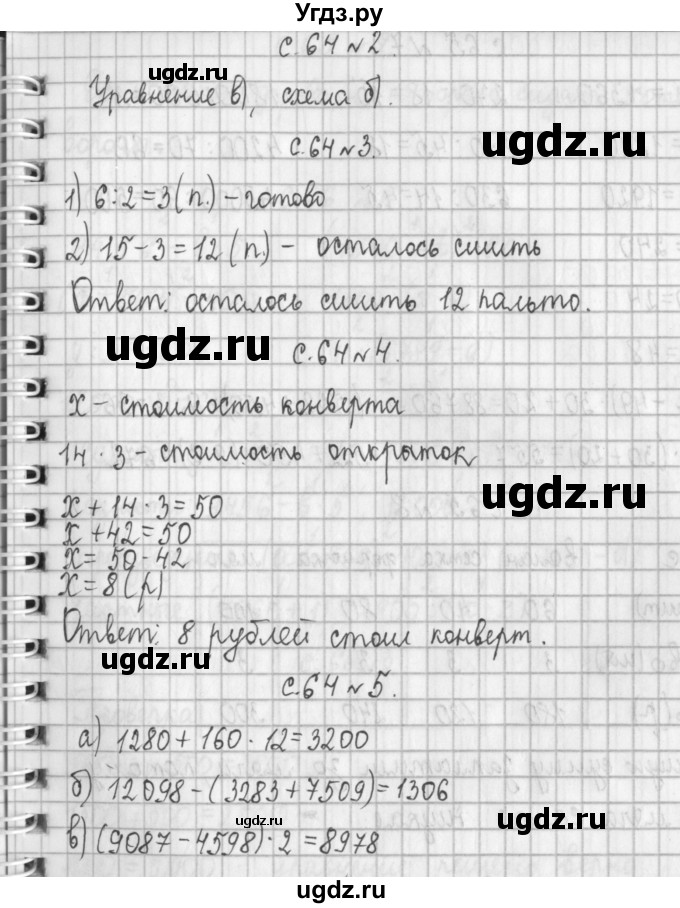 Угдз.ру
с.64 №2.
ugdz.ru
Уравнение в), схема б).
ugdz.ru
с.64 №3.
1) 6:2=3(п.) - готово
2) 15-3=12(п.) - осталось сшить
Ответ: осталось сшить 12 пальто.
ugdz.ru
с.64 №4.
х - стоимость конверта
14 · 3 - стоимость открыток
х + 14 · 3 = 50
х + 42 = 50
х = 50 - 42
х = 8(р)
ugdz.ru
Ответ: 8 рублей стоил конверт.
ugdz.ru
с.64 №5.
а) 1280 + 160 · 12 = 3200
б) 12098 - (3283 + 7509) = 1306
ugdz.ru
в) (9087 - 4598) · 2 = 8978
ugdz.ru
ugdz.ru